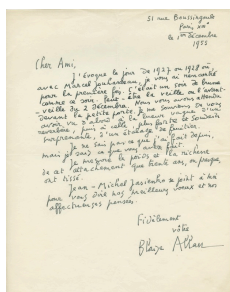 51 rue Boussingault
Paris, XIIIe
le 1er décembre
1955
Cher Ami,
J'évoque le jour de 1927 ou 1928 où
avec Marcel Jouhandeau, je vous ai rencontré
pour la première fois. C'était un soir de brume
comme ce soir, peut-être la veille ou l'avant-
veille du 2 décembre. Nous vous avons attendu
devant la petite porte, je me souviens de vous
avoir vu d'abord à la lueur vague d'un
réverbère, puis à celle plus forte et soudain
surprenante, d'un étalage de fruitier.
Je ne sais pas ce que j'ai fait depuis,
mais je sais ce que vous avez fait.
Je mesure le poids et la richesse
de cet attachement que trente ans, ou presque
ont tissé.
Jean-Michel se joint à moi
pour vous dire nos meilleurs vœux et nos
affectueuses pensées.
Fidèlement
vôtre
Blaise Allan